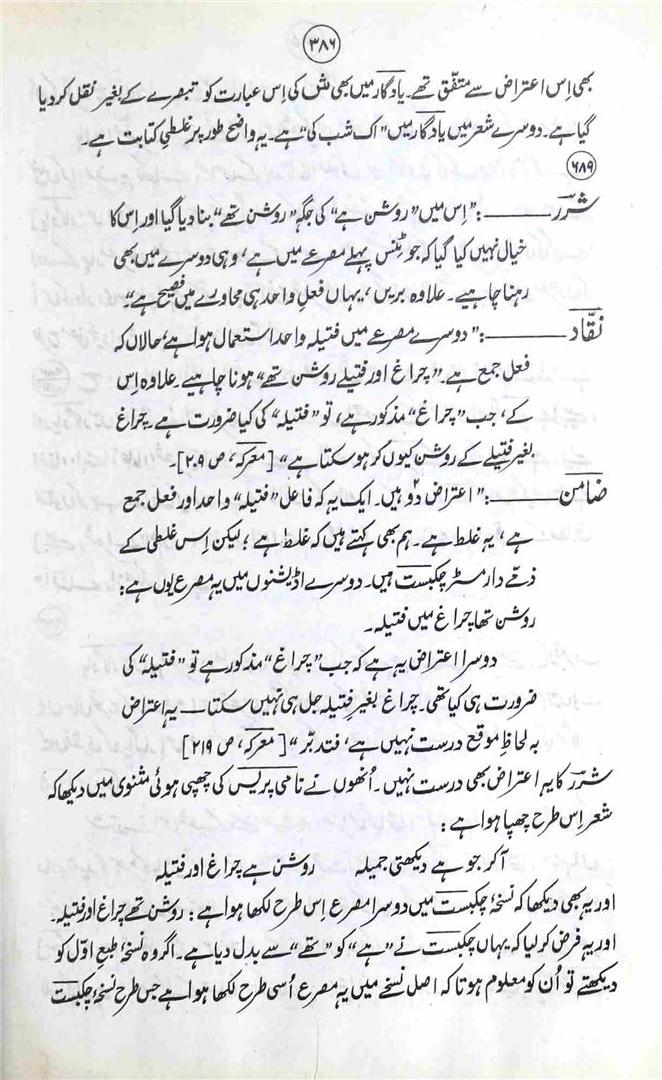 ۳۸۶
بھی اِس اعتراض سے متفق تھے۔ یادگار میں بھی ش کی اِس عبارت کو تبصرے کے بغیر نقل کر دیا
گیا ہے۔ دوسرے شعر میں یادگار میں ”اک شب کی“ ہے۔ یہ واضح طور پر غلطیِ کتابت ہے۔
۶۸۹
شرؔر ـــــ: ”اِس میں ”روشن ہے“ کی جگہ ”روشن تھے“ بنا دیا گیا اور اِس کا
خیال نہیں کیا گیا کہ جو ٹِنس پہلے مصرعے میں ہے، وہی دوسرے میں بھی
رہنا چاہیے۔ علاوہ بریں، یہاں فعلِ واحد ہی محاورے میں فصیح ہے“
نقّاد ـــــ: ”دوسرے مصرعے میں فتیلہ واحد استعمال ہوا ہے، حالاں کہ
فعل جمع ہے۔ ”چراغ اور فتیلے روشن تھے“ ہونا چاہیے۔ علاوہ اِس
کے، جب ”چراغ“ مذکور ہے، تو ”فتیلہ“ کی کیا ضرورت ہے۔ چراغ
بغیر فتیلے کے روشن کیوں کر ہو سکتا ہے“ [معرکہ، ص ۲۰۹]۔
ضامن ـــــ: ”اعتراض دو ہیں۔ ایک یہ کہ فاعل ”فتیلہ“ واحد اور فعل جمع
ہے، یہ غلط ہے۔ ہم بھی کہتے ہیں کہ غلط ہے؛ لیکن اِس غلطی کے
ذمّے دار مسٹر چکبست ہیں۔ دوسرے اڈیشنوں میں یہ مصرع یوں ہے:
روشن تھا چراغ میں فتیلہ۔
دوسرا اعتراض یہ ہے کہ جب ”چراغ“ مذکور ہے تو ”فتیلہ“ کی
ضرورت ہی کیا تھی۔ چراغ بغیرِ فتیلہ جل ہی نہیں سکتا ـــ یہ اعتراض
بہ لحاظِ موقع درست نہیں ہے، فتدبّر“ [معرکہ، ص ۲۱۹]
شرؔر کا یہ اعتراض بھی درست نہیں۔ اُنھوں نے نامی پریس کی چھپی ہوئی مثنوی میں دیکھا کہ
شعر اِس طرح چھپا ہوا ہے:
آکر جو ہے دیکھتی جمیلہ روشن ہے چراغ اور فتیلہ
اور یہ بھی دیکھا کہ نسخۂ چکبست میں دوسرا مصرع اِس طرح لکھا ہوا ہے: روشن تھے چراغ اور فتیلہ۔
اور یہ فرض کر لیا کہ یہاں چکبست نے ”ہے“ کو ”تھے“ سے بدل دیا ہے۔ اگر وہ نسخۂ طبعِ اوّل کو
دیکھتے تو اُن کو معلوم ہوتا کہ اصل نسخے میں یہ مصرع اُسی طرح لکھا ہوا ہے جس طرح نسخۂ چکبست